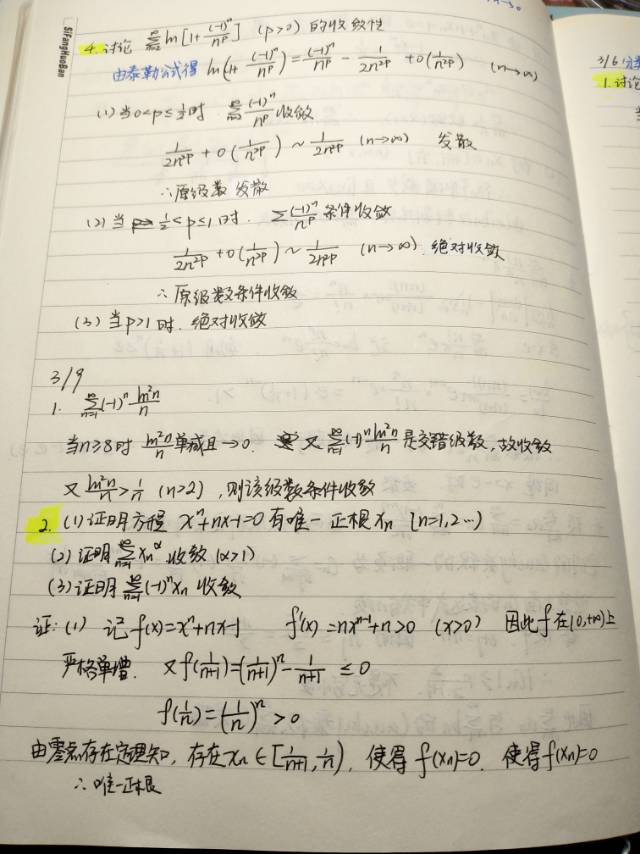 SiFangHuaBan
4. 讨论 ∑ ln[1+(-1)^n/n^p] (p>0) 的收敛性
由泰勒公式得 ln(1+(-1)^n/n^p)=(-1)^n/n^p - 1/2n^2p + o(1/n^2p) (n→∞)
(1) 当0<p≤1/2时 ∑(-1)^n/n^p 收敛
1/2n^2p + o(1/n^2p) ~ 1/2n^2p (n→∞) 发散
∴原级数 发散
(2) 当 1/2<p≤1时. ∑(-1)^n/n^p 条件收敛
1/2n^2p + o(1/n^2p) ~ 1/2n^2p (n→∞). 绝对收敛
∴原级数条件收敛
(3) 当p>1时. 绝对收敛
3/9
1. ∑_{n=1}^∞ (-1)^n ln²n/n
当n≥8时 ln²n/n 单减且→0. 又 ∑(-1)^n ln²n/n 是交错级数, 故收敛
又 ln²n/n > 1/n (n>2), 则该级数条件收敛
2. (1) 证明方程 x^n+nx-1=0 有唯一正根 x_n (n=1,2…)
(2) 证明 ∑_{n=1}^∞ x_n^α 收敛 (α>1)
(3) 证明 ∑_{n=1}^∞ (-1)^n x_n 收敛
证: (1) 记 f(x)=x^n+nx-1 f'(x)=nx^{n-1}+n>0 (x>0) 因此 f 在(0,+∞)上
严格单增. 又 f(1/n+1)=(1/n+1)^n - 1/n+1 ≤0
f(1/n)=(1/n)^n >0
由零点存在定理知, 存在 x_n∈[1/n+1, 1/n), 使得 f(x_n)=0. 使得 f(x_n)=0
∴唯一正根
3/6
1. 讨论